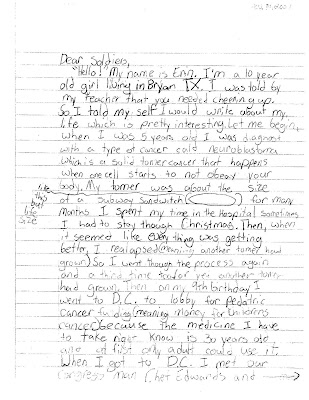 Dear Soldiers,
"Hello! My name is Erin. I'm a 10 year
old girl living in Bryan TX. I was told by
my teacher that you needed cheering up.
So I told my self I would write about my
life which is pretty interesting. Let me begin,
when I was 5 years old I was diagnost
with a type of cancer cald neuroblastoma
which is a solid tomer cancer that happens
when one cell starts to not obeay your
body. My tomer was about the size
of a subway sandwitch for many
like this but life size
months I spent my time in the Hospital sometimes
I had to stay though Christmas. Then, when
it seemed like every thing was getting
better, I realapsed (meaning another tomer had
grown) So I went though the process again
and a third time too for you another tomer
had grown. Then on my 9th birthday I
went to D.C. to lobby for pediatric
Cancer funding (meaning money for childrens
cancer) because the medicine I have
to take right know is 30 years old
and at first only adult could use it.
When I got to D.C. I met our
congress man Chet Edwards and